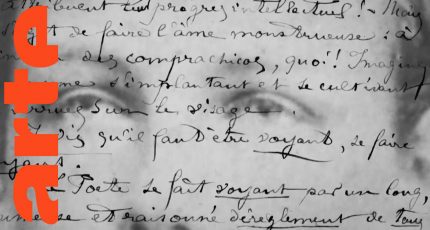 arte
ibuent un progrès intellectuel ! - Mais
de faire l'âme monstrueuse : à
des comprachicos, quoi !! Imaginez
s'implantant et se cultivant
verrues sur le visage.
dis qu'il faut être voyant, se faire
yant.
Poète se fait voyant par un long,
mense et raisonné dérèglement de tous